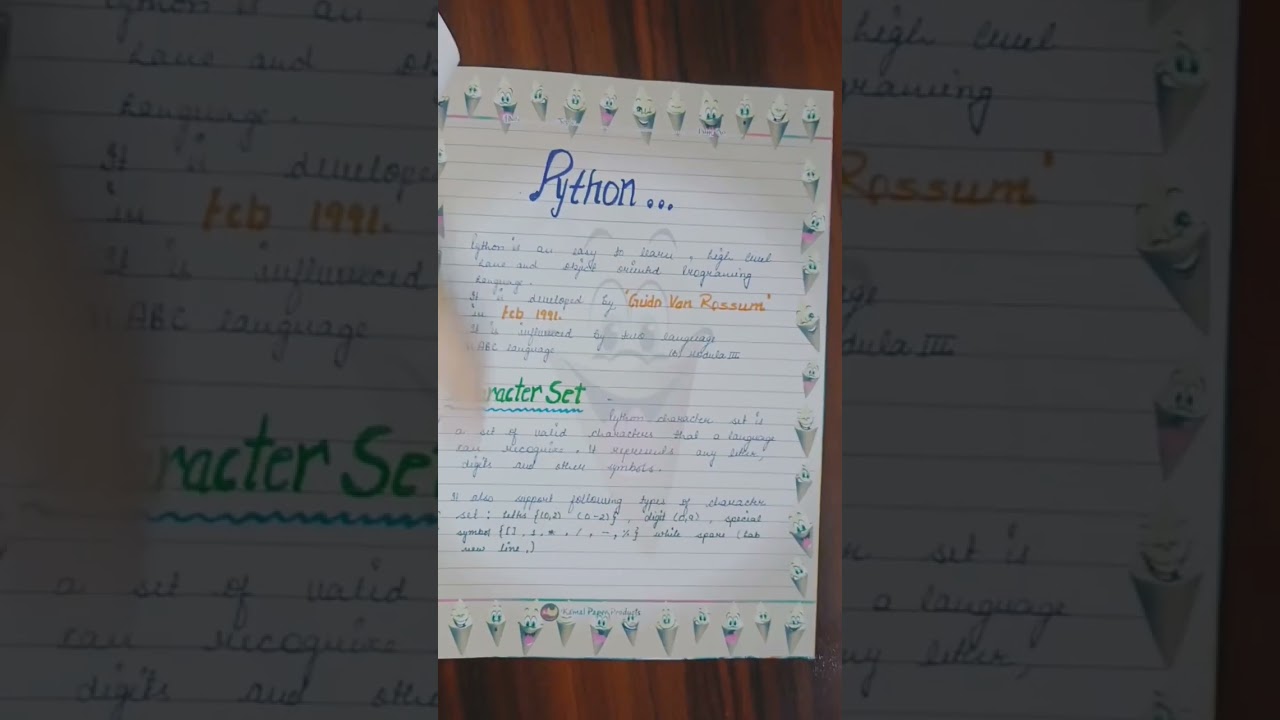 Python...
Python is an easy to learn, high level
Lane and object oriented Programing
Language.
It is developed by "Guido Van Rossum"
in Feb 1991.
It is influenced by two language
ABC language (b) Modula III
racter Set
Python character set is
a set of valid characters that a language
can recognize. It represents any letter,
digits and other symbols.
It also support following types of character
set: , digit (0,9), special
symbol white space (tab
new line,)
Komal Paper Products